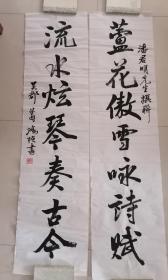 潘君明先生撰联
蘆花傲雪咏詩賦
流水炫琴奏古今
吴郡
书